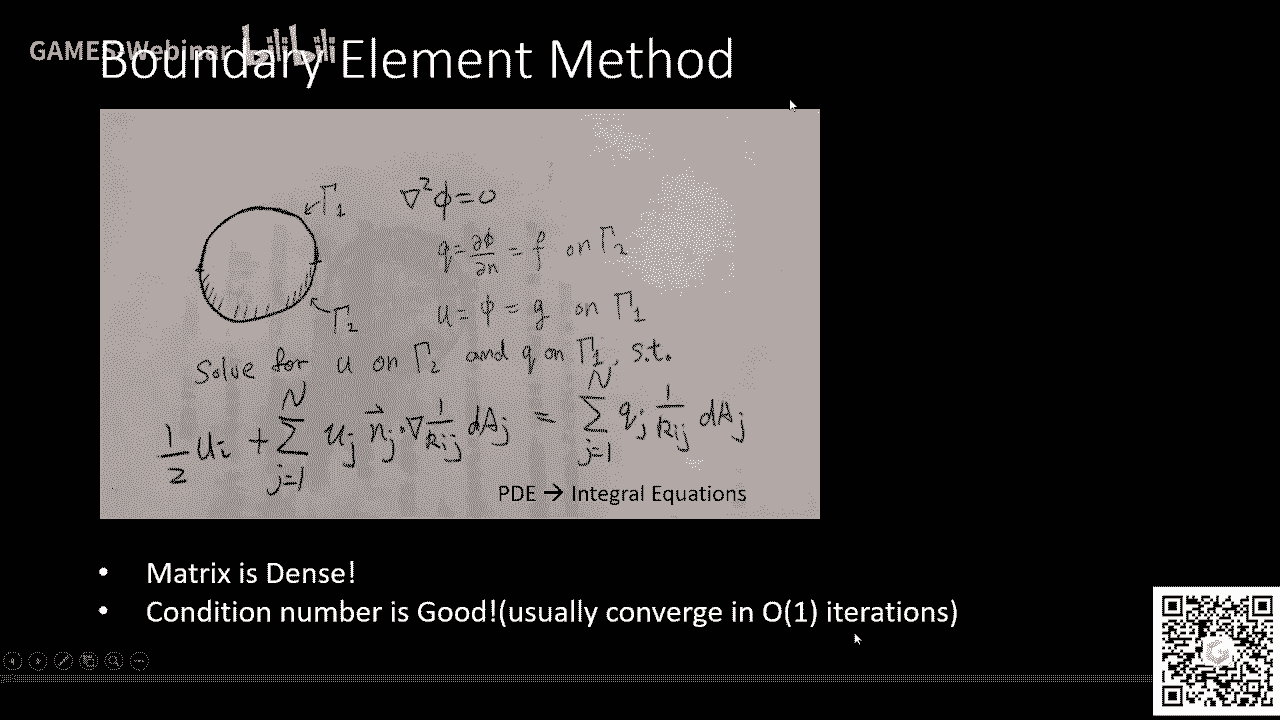 GAMES-Webinar bilibili
Boundary Element Method
Γ₁ ∇²ϕ=0
q=∂ϕ/∂n = f on Γ₂
Γ₂ u= ϕ = g on Γ₁
Solve for u on Γ₂ and q on Γ₁, s.t.
1/2 uᵢ + ∑_{j=1}^{N} uⱼ n⃗ⱼ·∇ 1/Rᵢⱼ dAⱼ = ∑_{j=1}^{N} qⱼ 1/Rᵢⱼ dAⱼ
PDE → Integral Equations
• Matrix is Dense!
• Condition number is Good!(usually converge in O(1) iterations)